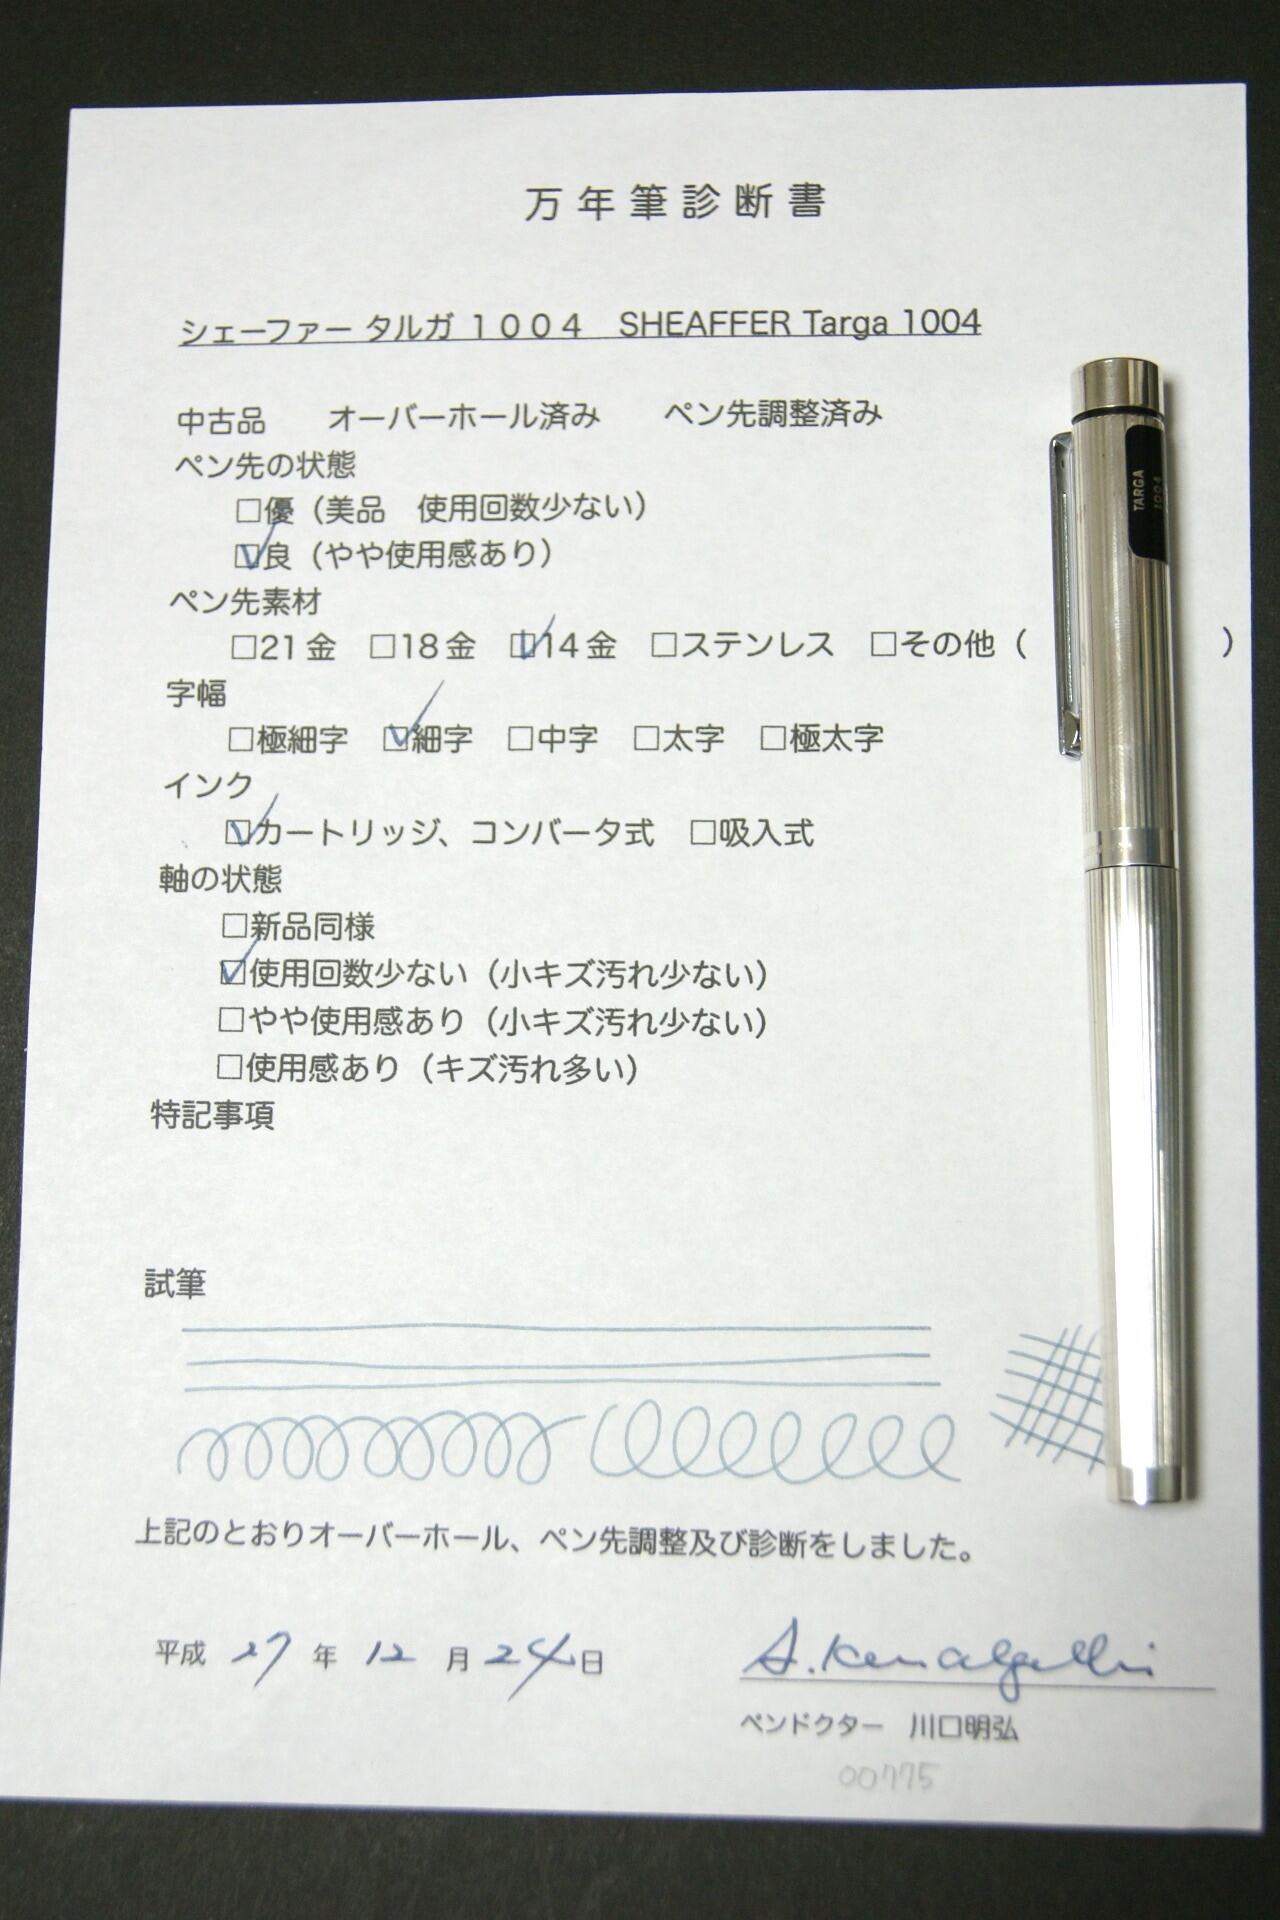 万年筆診断書
シェーファー タルガ 1004 SHEAFFER Targa 1004
中古品 オーバーホール済み ペン先調整済み
ペン先の状態
□優（美品 使用回数少ない）
☑良（やや使用感あり）
ペン先素材
□21金 □18金 ☑14金 □ステンレス □その他（ ）
字幅
□極細字 ☑細字 □中字 □太字 □極太字
インク
☑カートリッジ、コンバータ式 □吸入式
軸の状態
□新品同様
☑使用回数少ない（小キズ汚れ少ない）
□やや使用感あり（小キズ汚れ少ない）
□使用感あり（キズ汚れ多い）
特記事項
試筆
上記のとおりオーバーホール、ペン先調整及び診断をしました。
平成 27 年 12 月 24 日
A. Kawaguchi
ペンドクター 川口明弘
00775
TARGA
1004